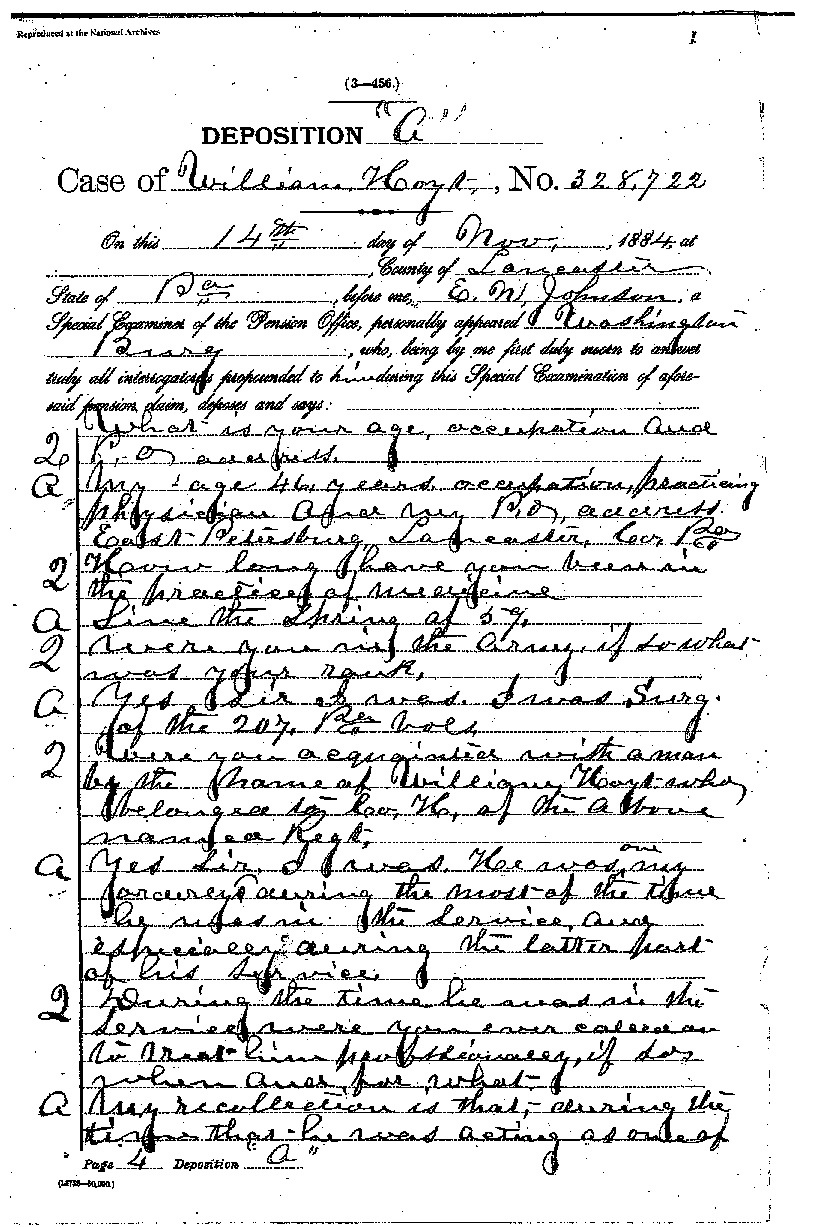 Reproduced at the National Archives
1
(3—456.)
DEPOSITION "A"
Case of William Hoyt, No. 328,722
On this 14th day of Nov., 1884, at
, County of Lancaster
State of Pa, before me, E. W. Johnson, a
Special Examiner of the Pension Office, personally appeared Washington
Burg, who, being by me first duly sworn to answer
truly all interrogatories propounded to him during this Special Examination of afore-
said pension claim, deposes and says:
What is your age, occupation and
Q P.O. address.
A My age 46, years, occupation, practicing
physician and my P.O, address
East Petersburg, Lancaster, Co, Pa
Q How long have you been in
the practice of medicine
A Since the Spring of 59.
Q Were you in the army, if so what
was your rank,
A Yes Sir I was. I was Surg.
of the 207. Pa Vols,
Q Were you acquainted with a man
by the name of William Hoyt who
belonged to Co, H, of the above
named Regt,
A Yes Sir. I was. He was one my
during the most of the time
he was in the service, and
especially during the latter part
of his service,
Q During the time he was in the
service, were you ever called on
to treat him professionally, if so,
when and for what
A My recollection is that, during the
time that he was acting as one of
Page 4 Deposition "A"